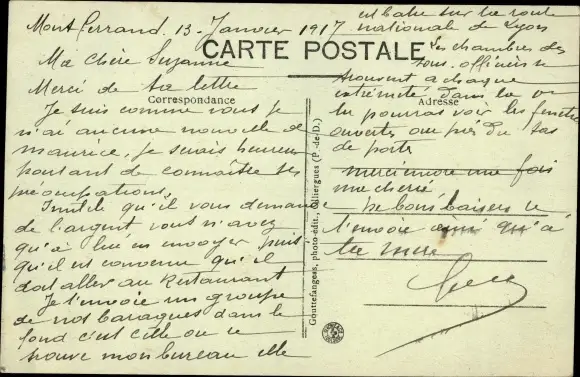 Mont Ferrand. 13 Janvier 1917
CARTE POSTALE
Ma Chère Suzanne
Merci de ta lettre
Correspondance
Je suis comme vous je
n'ai aucune nouvelle de
Maurice, je serais heureux
pourtant de connaître ses
préocupations,
Inutile qu'il vous demande
de l'argent vous n'avez
qu'à lui en envoyer puis
qu'il est convenu qu'il
doit aller au Restaurant
Je t'envoie un groupe
de nos baraques dans le
fond c'est celle ou se
trouve mon bureau elle
est batie sur la route
nationale de Lyon
Les chambres des
sous. officiers se
trouvent a chaque
extrémité dans la
Adresse
tu pourras voir les fenetres
ouvertes au près du
de porte
merci encore une fois
ma cherie
de bons baisers je
t'envoie ainsi qu'à
ta mere
Gouttefangeas, photo-édit., Olliergues (P.-de-D.)